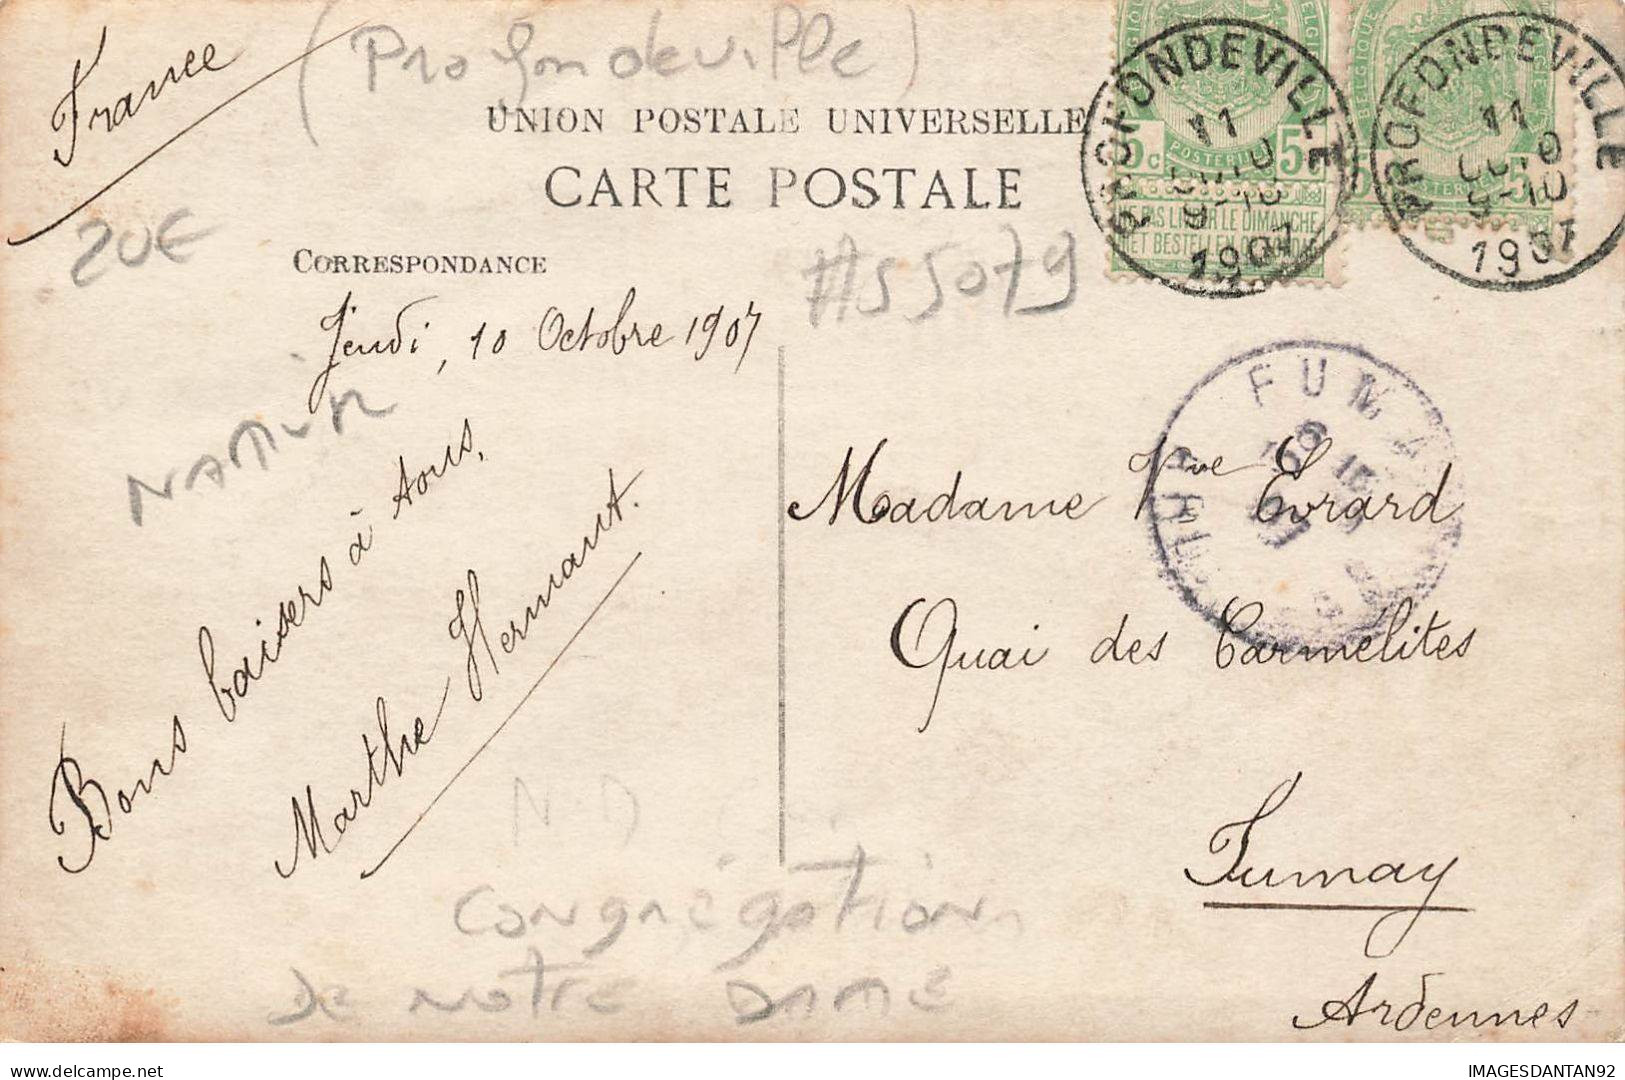 France
(Profondeville)
UNION POSTALE UNIVERSELLE
CARTE POSTALE
BELGIQUE
5c 5c
POSTERIJEN
NE PAS LIVRER LE DIMANCHE
NIET BESTELLEN OP ZONDAG
PROFONDEVILLE
11
OCTO
9-10
1907
BELGIQUE
5 5
POSTERIJEN
PROFONDEVILLE
11
OCTO
9-10
1907
20€
CORRESPONDANCE
#55079
Jeudi, 10 Octobre 1907
NAMUR
FUMA
Bons baisers à tous,
Marthe Hermant.
Madame Vve Evrard
Quai des Carmelites
Fumay
Ardennes
ND
Congrégation
De Notre Dame
IMAGESDANTAN92